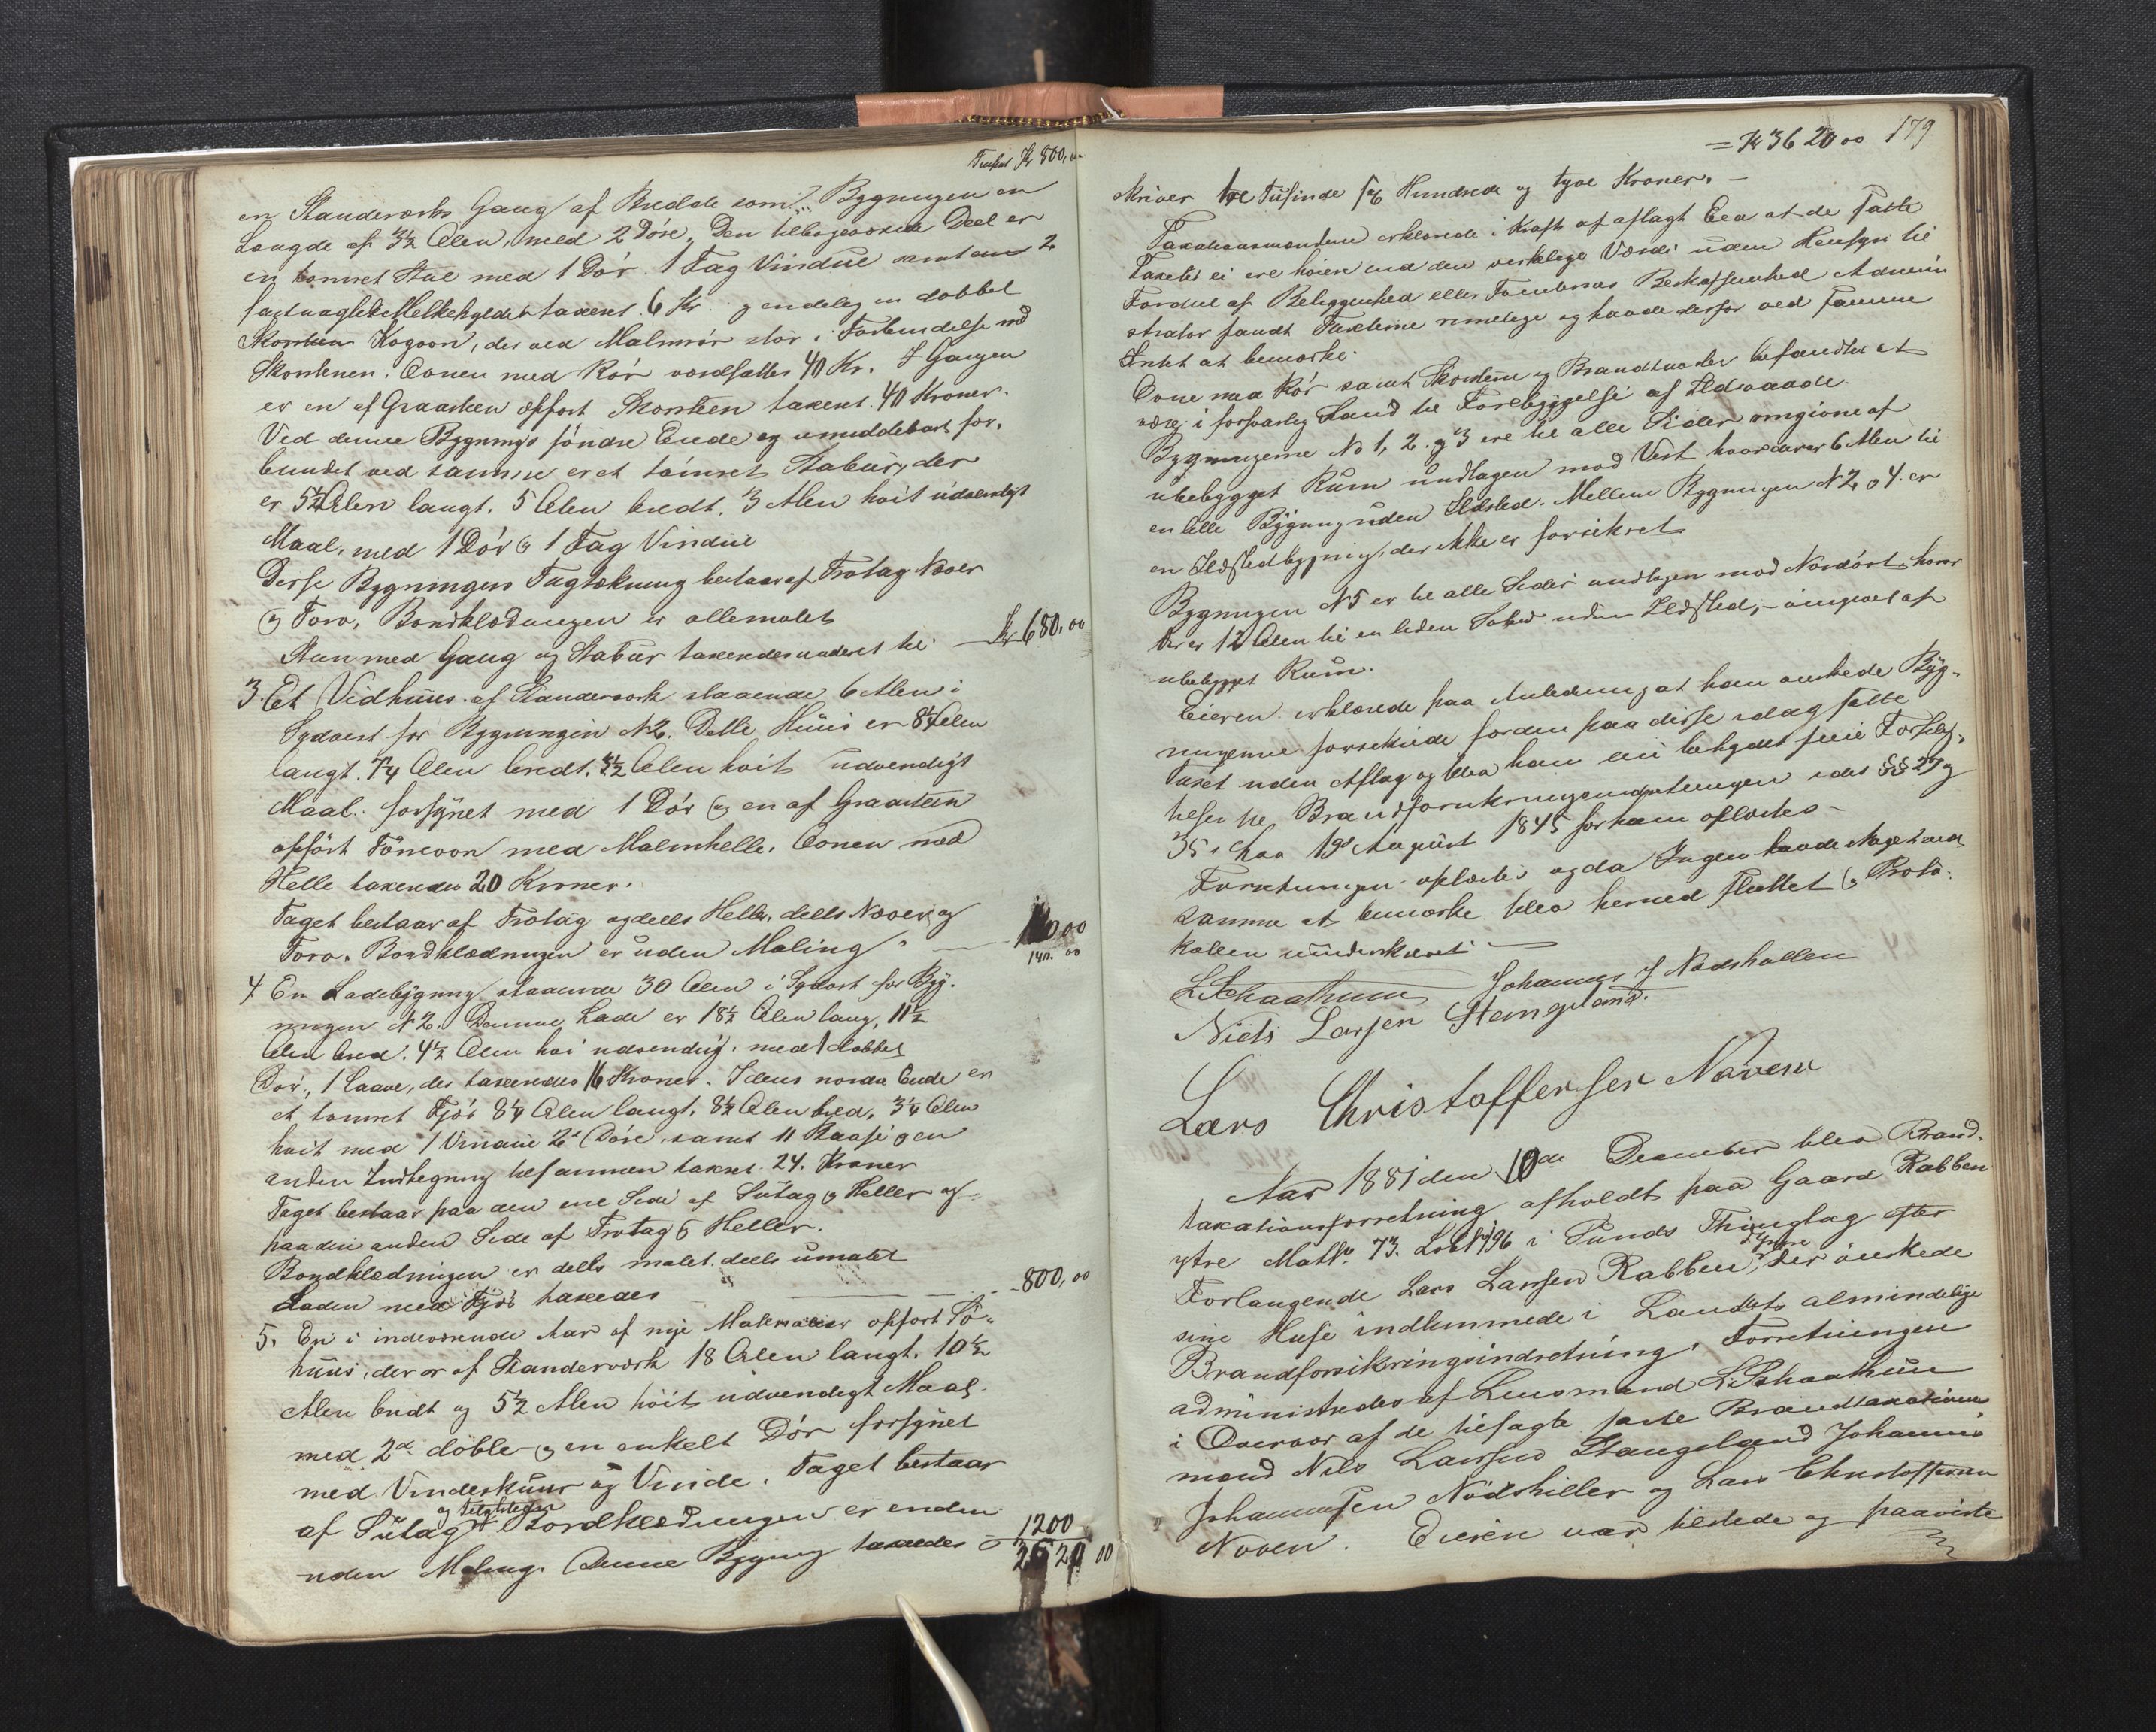 Kr 800,00
en Standværks Gang af Bredde som Bygningen en
Længde af 3½ Alen, med 2 Døre. Den tilbageværende Deel er
en tømret Stue med 1 Dør. 1 Fag Vindue samt en 2
Melkehylde taxeret 6 Kr. og endelig en dobbel
Kogoon, der ved Malmrør står i Forbindelse med
Skorstenen. Ovnen med Rør værdsattes 40 Kr. I Gangen
er en af Graasteen opført Skorsteen taxeret 40 Kroner.
Ved denne Bygnings søndre Ende og umiddelbart for-
bundet ved samme er et tømret Stabur, der
er 5½ Alen langt. 5 Alen bredt. 3 Alen høit udvendigt
Maal, med 1 Dør og 1 Fag Vindue
Disse Bygningers Tagtækning bestaar af Trotag Næver
og Torv. Bordklædningen er ollemalet
Stuen med Gang og Stabur taxeredes til — Kr 680,00
3. Et Vidhuus af Standværk staaende 6 Alen i
Sydvest for Bygningen N 2. Dette Huus er 8¼ Alen
langt. 7¼ Alen bredt. Alen høit udvendigt
Maal. forsynet med 1 Dør og en af Graasteen
opført Ovn med Malmhelle. Ovnen med
Helle taxeredes 20 Kroner.
Taget bestaar af Trotag og deels Heller, deels Næver og
Torv. Bordklædningen er uden Maling — 140. 00
4 En Ladebygning staaende 30 Alen i Sydost for Byg-
ningen N 2. Denne Lade er 18½ Alen lang, 11½
Alen bred. 4½ Alen høi udvendig. med 1 dobbel
Dør, 1 Laave, der taxeredes 16 Kroner. I dens nordre Ende er
et tømret Fjøs 8¼ Alen langt, 8½ Alen bred, 3¼ Alen
høit med 1 Vindue 2de Døre, samt 11 Baase og en
anden Indhegning tilsammen taxeret 24. Kroner
Taget bestaar paa den ene Side af Sutag og Heller og
paa den anden Side af Trotag og Heller.
Bordklædningen er deels malet deels umalet
Laden med Fjøs taxeredes — 800,00
5. En i indeværende Aar af nye Materialier opført Sø-
huus, der er af Standværk 18 Alen langt. 10½
Alen bredt og 5½ Alen høit udvendigt Maal.
med 2de doble og en enkelt Dør forsynet
med Vinderskuur og Vinde. Taget bestaar
og Teglsteen
af Sutag Bordklædningen er enden
uden Maling. Denne Bygning taxeredes 1200
3620 00
= Kr 3620 00 179
skriver tre Tusinde sex Hundrede og tyve Kroner. —
Taxationsmændene erklærede i Kraft af aflagt Eed at de satte
Taxter ei ere høiere end den verkelige Værdi uden Hensyn til
Fordeel af Beliggenhed eller Tomternes Beskaffenhed Admini
strator fandt Taxterne rimelige og havde derfor ved samme
Intet at bemærke.
Ovne med Rør samt Skorstene og Brandmurer befandtes at
være i forsvarlig Stand til Forebyggelse af Ildsvaade.
Bygningerne No 1, 2 og 3 ere til alle Sider omgivne af
ubebygget Rum undtagen mod Vest hvor der er 6 Alen til
en lille Bygning uden Ildsted. Mellem Bygningen N 2 og 4 er
en Ildstedbygning, der ikke er forsikret
Bygningen N 5 er til alle Sider undtagen mod Nordøst, hvor
der er 12 Alen til en liden Søbod uden Ildsted, — omgivet af
ubebygget Rum.
Eieren erklærede paa Anledning at han ønskede Byg-
ningerne forsikrede for den paa disse idag satte
Taxt uden Afslag og blev han nu betydet sine Forplig-
telser til Brandforsikringsindretningen idet §§ 27 og
35 i Lov 19d August 1845 for ham oplæstes —
Forretningen oplæstes og da Ingen havde Noget ved
samme at bemærke blev hermed sluttet og Proto-
kollen underskrevet —
L Schaathuun Johannes J Nødskallen
Niels Larsen Stangeland.
Lars Christoffersen Noven
Aar 1881 den 10de December blev Brand-
taxationsforretning afholdt paa Gaard Rabben
ytre Mattr. 73. Løb 196 i Funds Thinglag efter
Forlangende Lars Larsen Rabben ytre der ønskede
sine Huse indlemmede i Landets almindelige
Brandforsikringsindretning. Forretningen
administredes af Lensmand L. Schaathuun
i Overvær af de tilsagte faste Brandtaxations
mænd Niels Larsen Stangeland Johannes
Johannessen Nødskiller og Lars Christoffersen
Noven. Eieren var tilstede og paaviste